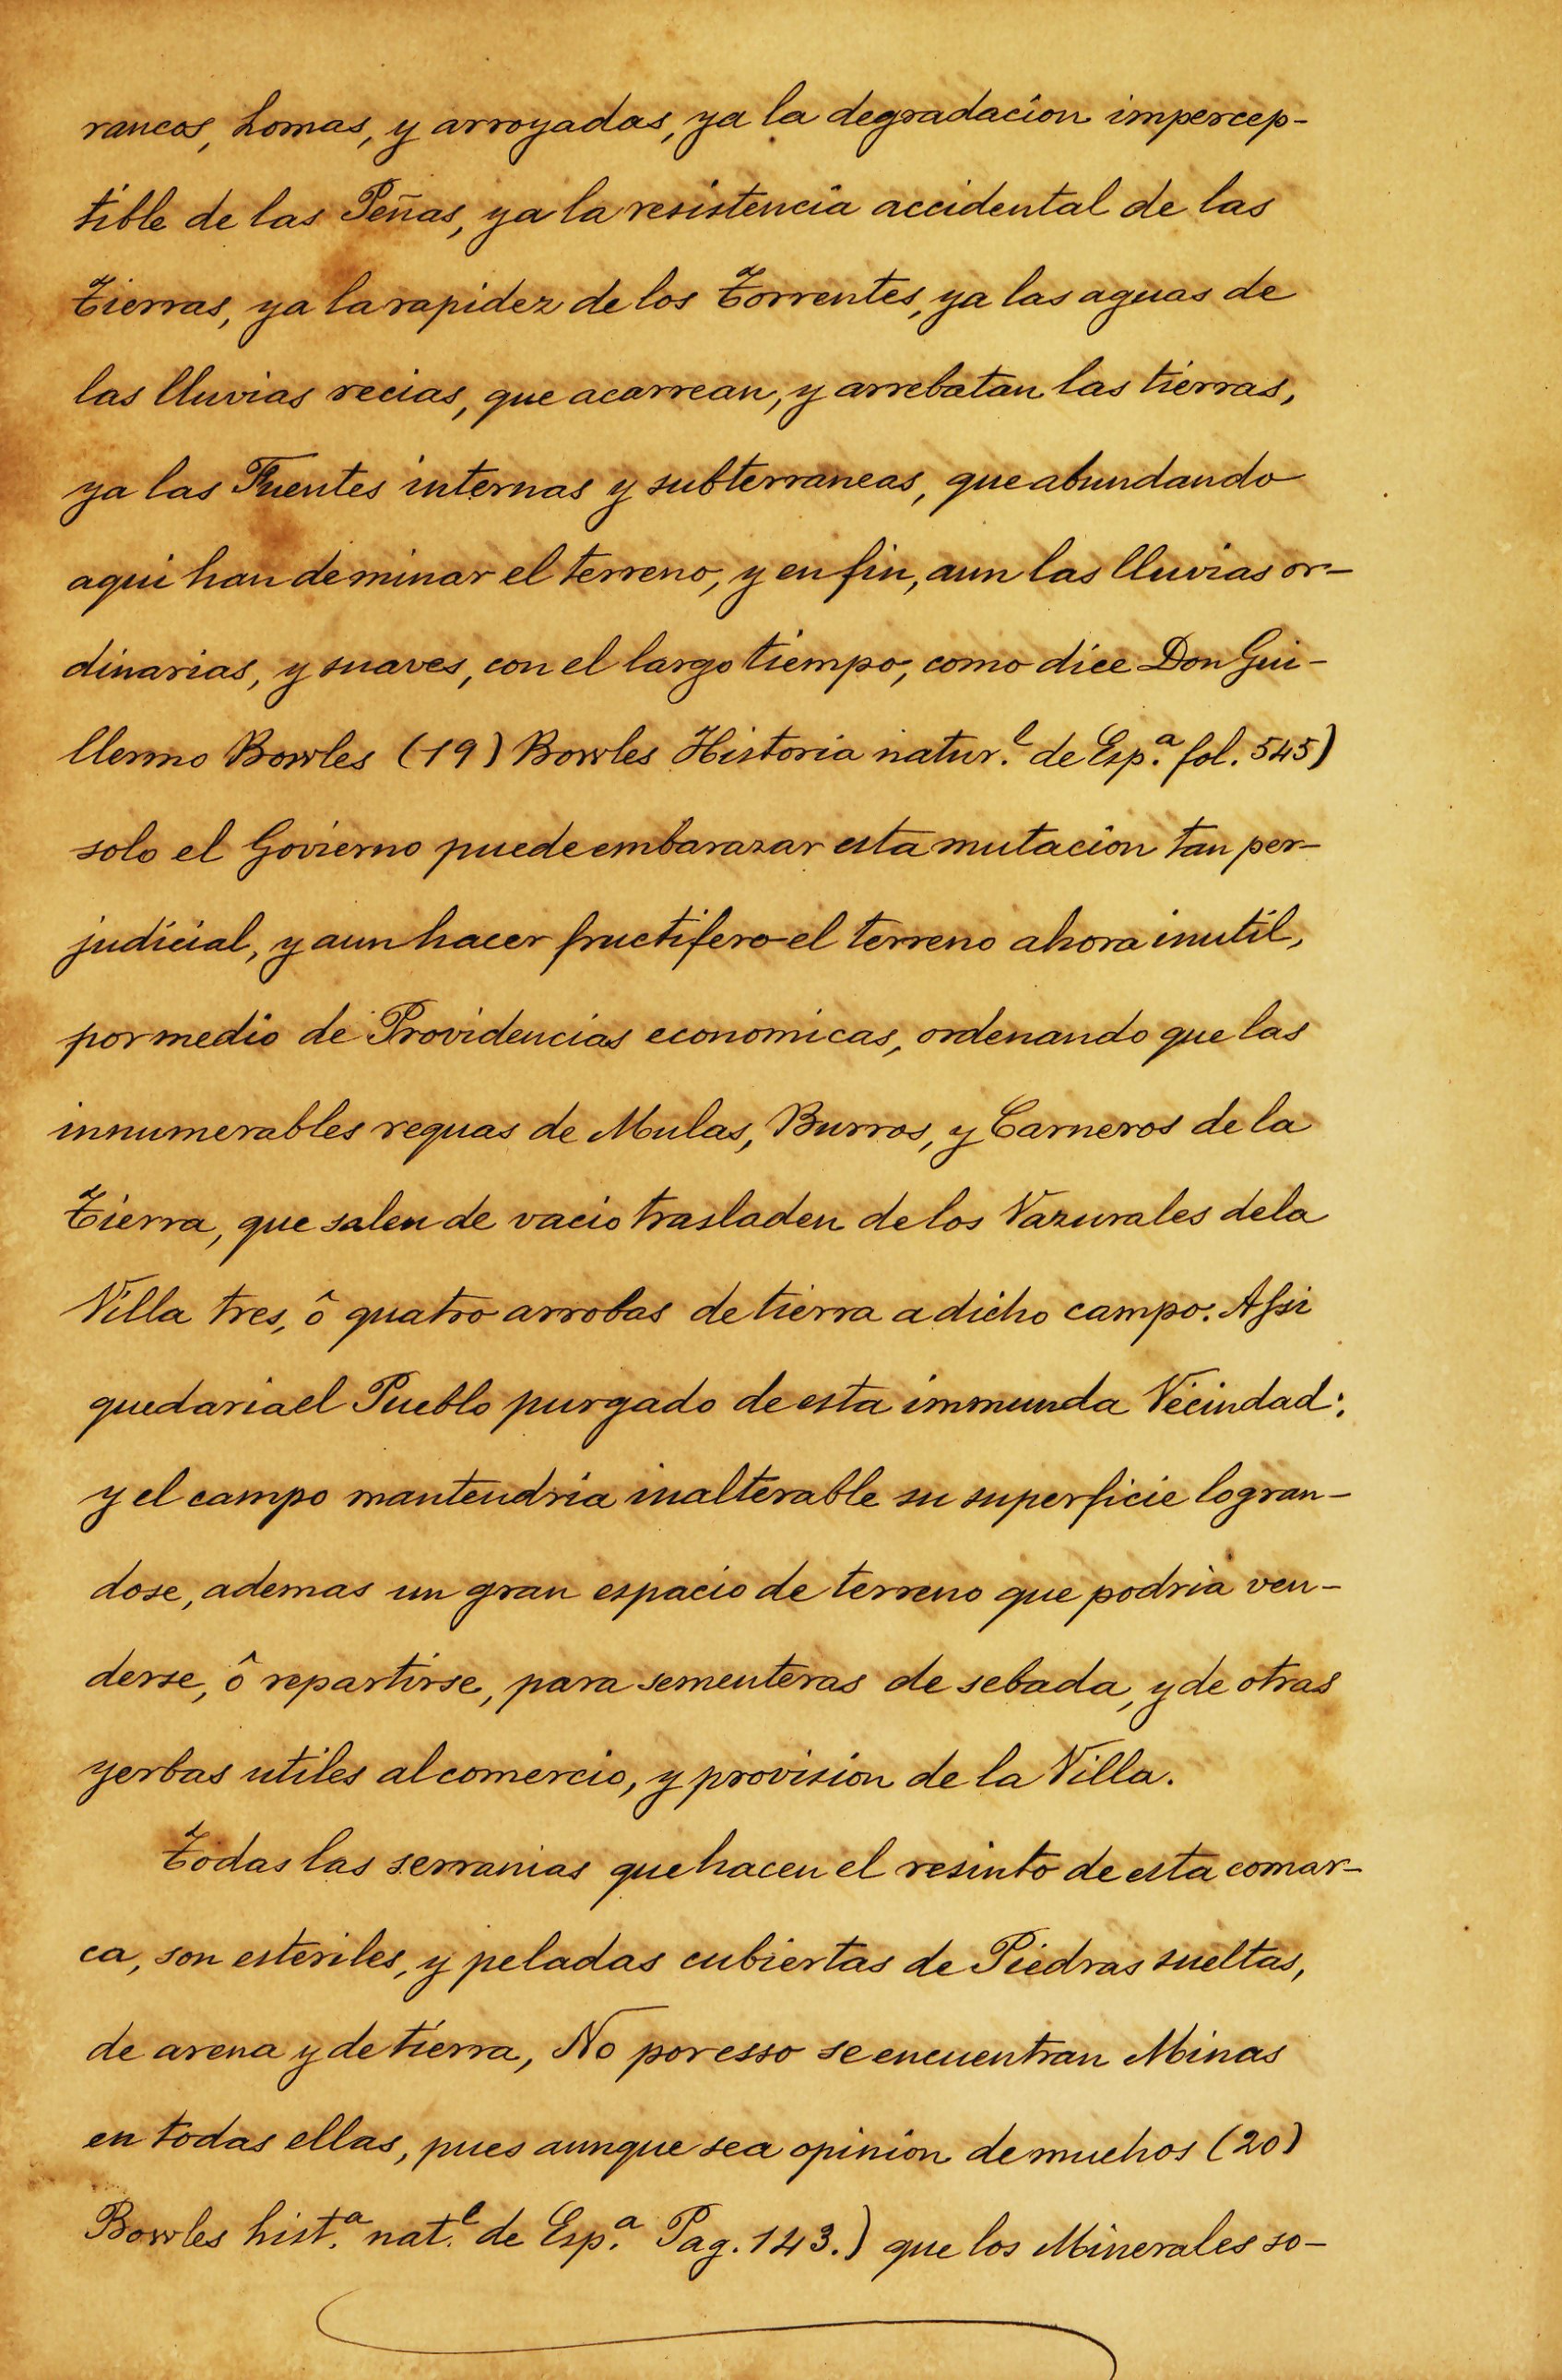 rancos, Lomas, y arroyadas, ya la degradacion impercep-
tible de las Peñas, ya la resistencia accidental de las
Tierras, ya la rapidez de los Torrentes, ya las aguas de
las lluvias recias, que acarrean, y arrebatan las tierras,
ya las Fuentes internas y subterraneas, que abundando
aqui han de minar el terreno, y en fin, aun las lluvias or-
dinarias, y suaves, con el largo tiempo, como dice Don Gui-
llermo Bowles (19) Bowles Historia natur.l de Esp.a fol. 545)
solo el Govierno puede embarazar esta mutacion tan per-
judicial, y aun hacer fructifero el terreno ahora inutil,
por medio de Providencias economicas, ordenando que las
innumerables requas de Mulas, Burros, y Carneros de la
Tierra, que salen de vacio trasladen de los Vazurales dela
Villa tres, ô quatro arrobas de tierra a dicho campo. Assi
quedaria el Pueblo purgado de esta immunda Vecindad:
y el campo mantendria inalterable su superficie logran-
dose, ademas un gran espacio de terreno que podria ven-
derse, ô repartirse, para sementeras de sebada, y de otras
yerbas utiles al comercio, y provision de la Villa.
Todas las serranias que hacen el resinto de esta comar-
ca, son esteriles, y peladas cubiertas de Piedras sueltas,
de arena y de tierra, No por esso se encuentran Minas
en todas ellas, pues aunque sea opinion de muchos (20)
Bowles hist.a nat.l de Esp.a Pag. 143.) que los Minerales so-